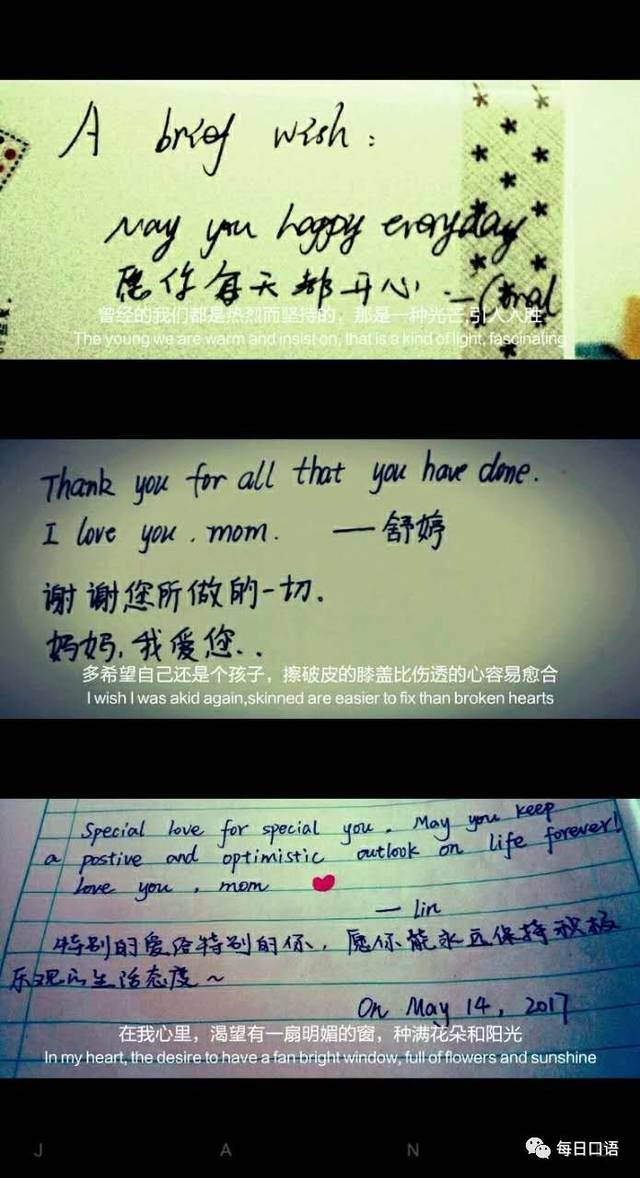 A brief wish:
May you happy everyday
愿你每天都开心
曾经的我们都是热烈而坚持的，那是一种光芒,引人入胜
The young we are warm and insist on, that is a kind of light, fascinating
Thank you for all that you have done.
I love you, mom. —舒婷
谢谢您所做的一切.
妈妈,我爱您..
多希望自己还是个孩子，擦破皮的膝盖比伤透的心容易愈合
I wish I was akid again,skinned are easier to fix than broken hearts
Special love for special you. May you keep
a postive and optimistic outlook on life forever!
Love you, mom
— Lin
特别的爱给特别的你，愿你能永远保持积极
乐观的生活态度~
On May 14, 2017
在我心里，渴望有一扇明媚的窗，种满花朵和阳光
In my heart, the desire to have a fan bright window, full of flowers and sunshine
J A N
每日口语